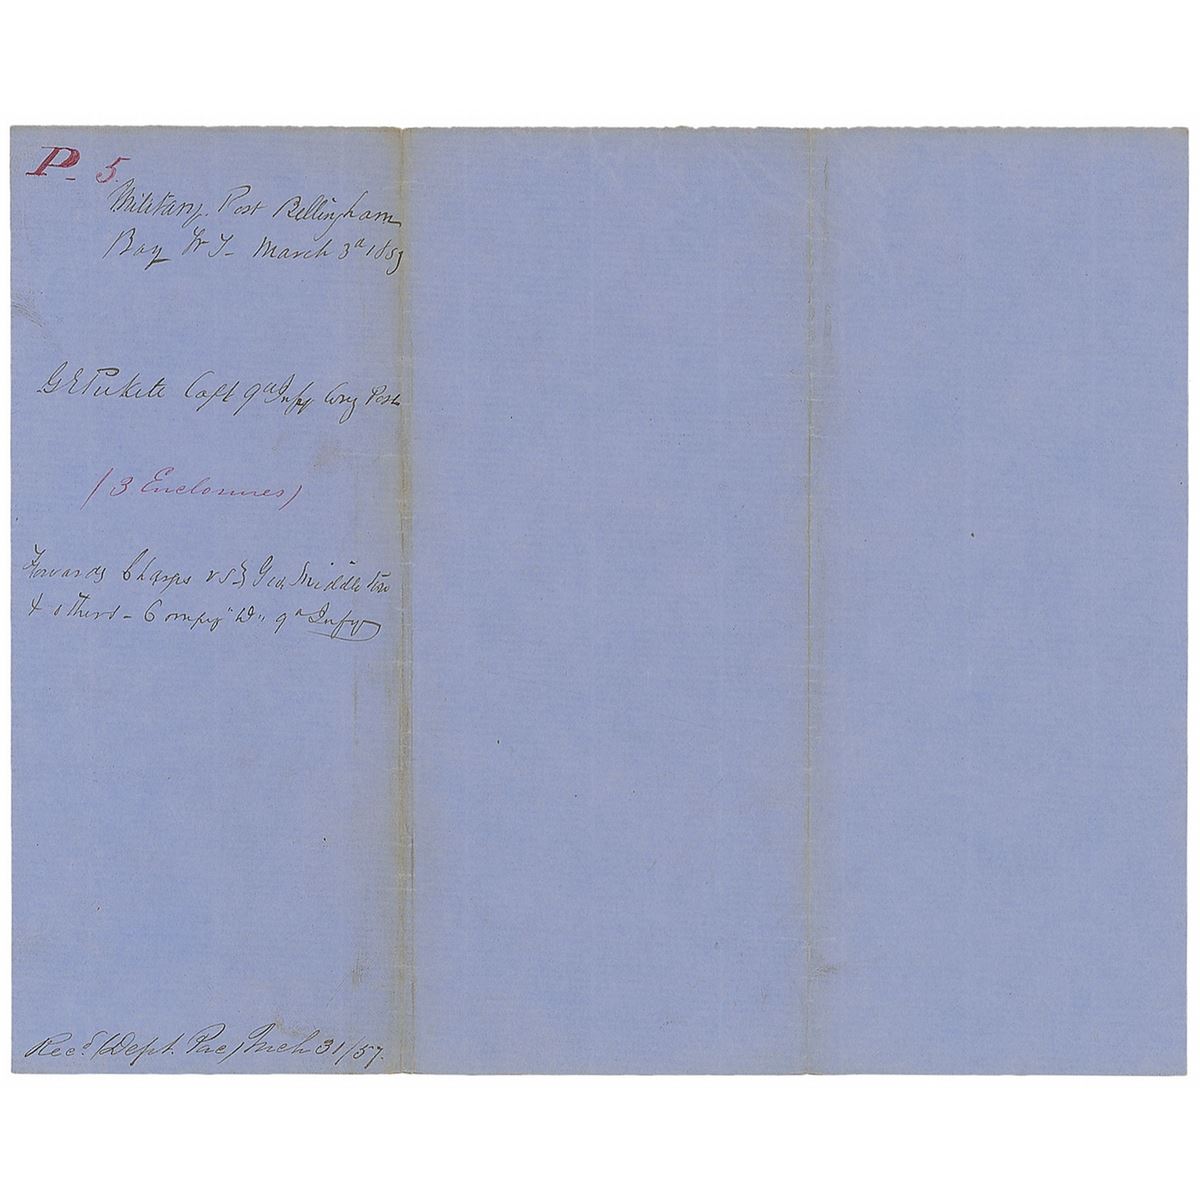 P. 5.
Military Post Bellingham
Bay W T - March 3d 1857
G E Pickett Capt 9th Infy Comg Post
(3 Enclosures)
Forwards Charges vs Geo Middleton
& others - Compy "D" 9th Infy
Recd (Dept. Pac) Mch 31/57.